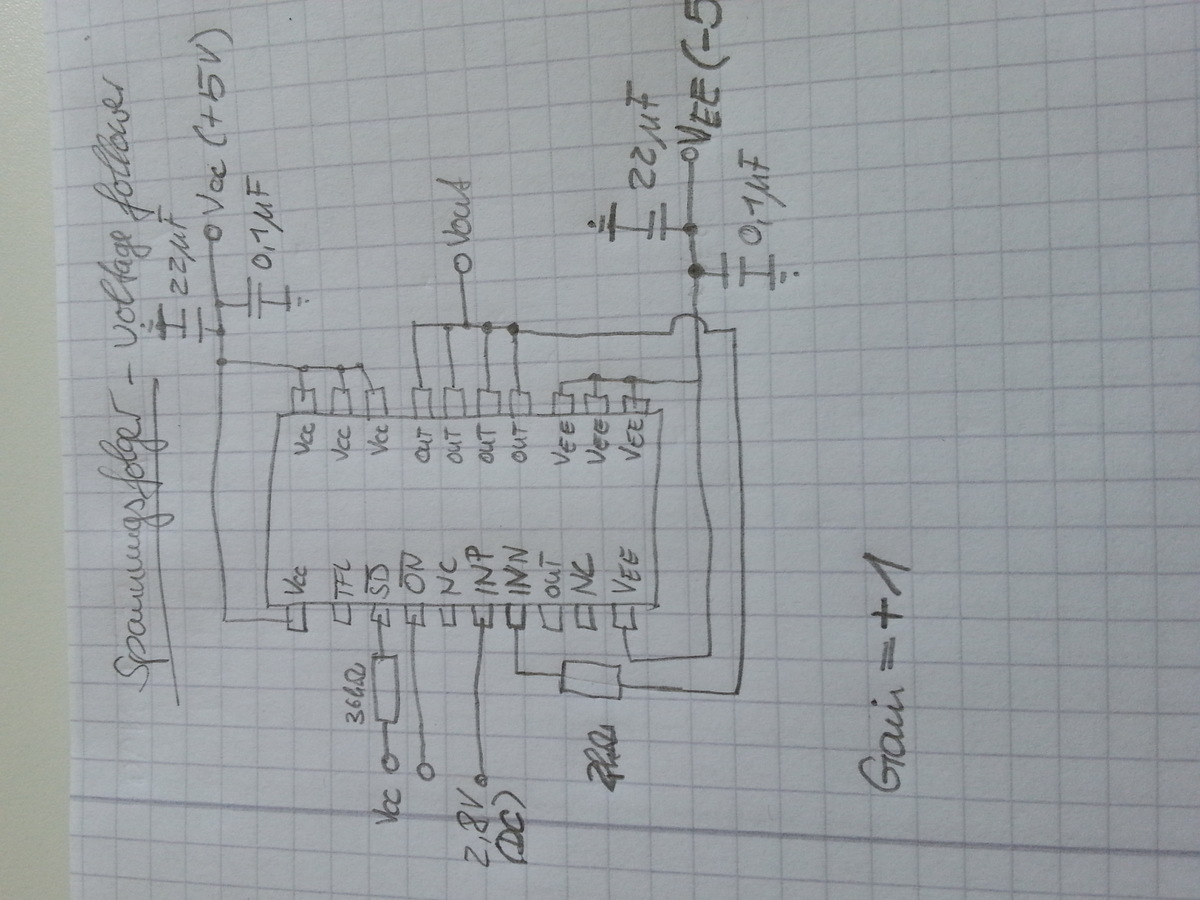 Spannungsfolger - voltage follower
22µF
Vcc (+5V)
0,1µF
Vcc
Vcc
TFL
Vcc
36kΩ
SD
Vcc
Vcc
ON
OUT
Vout
NC
OUT
2,8V
(DC)
INP
OUT
INN
OUT
OUT
NC
VEE
VEE
VEE
VEE
22µF
VEE (-5
0,1µF
Gain = +1